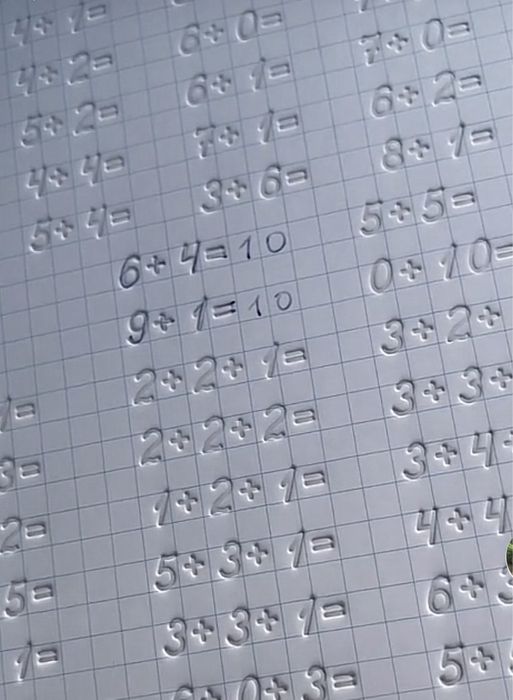 4+1=
4+2=
5+2=
4+4=
5+4=
6+0=
6+1=
7+1=
3+6=
6+4=10
9+1=10
2+2+1=
2+2+2=
1+2+1=
5+3+1=
3+3+1=
0+3=
7+0=
6+2=
8+1=
5+5=
0+10=
3+2+
3+3+
3+4
4+4
6+
5+
1=
3=
2=
5=
1=